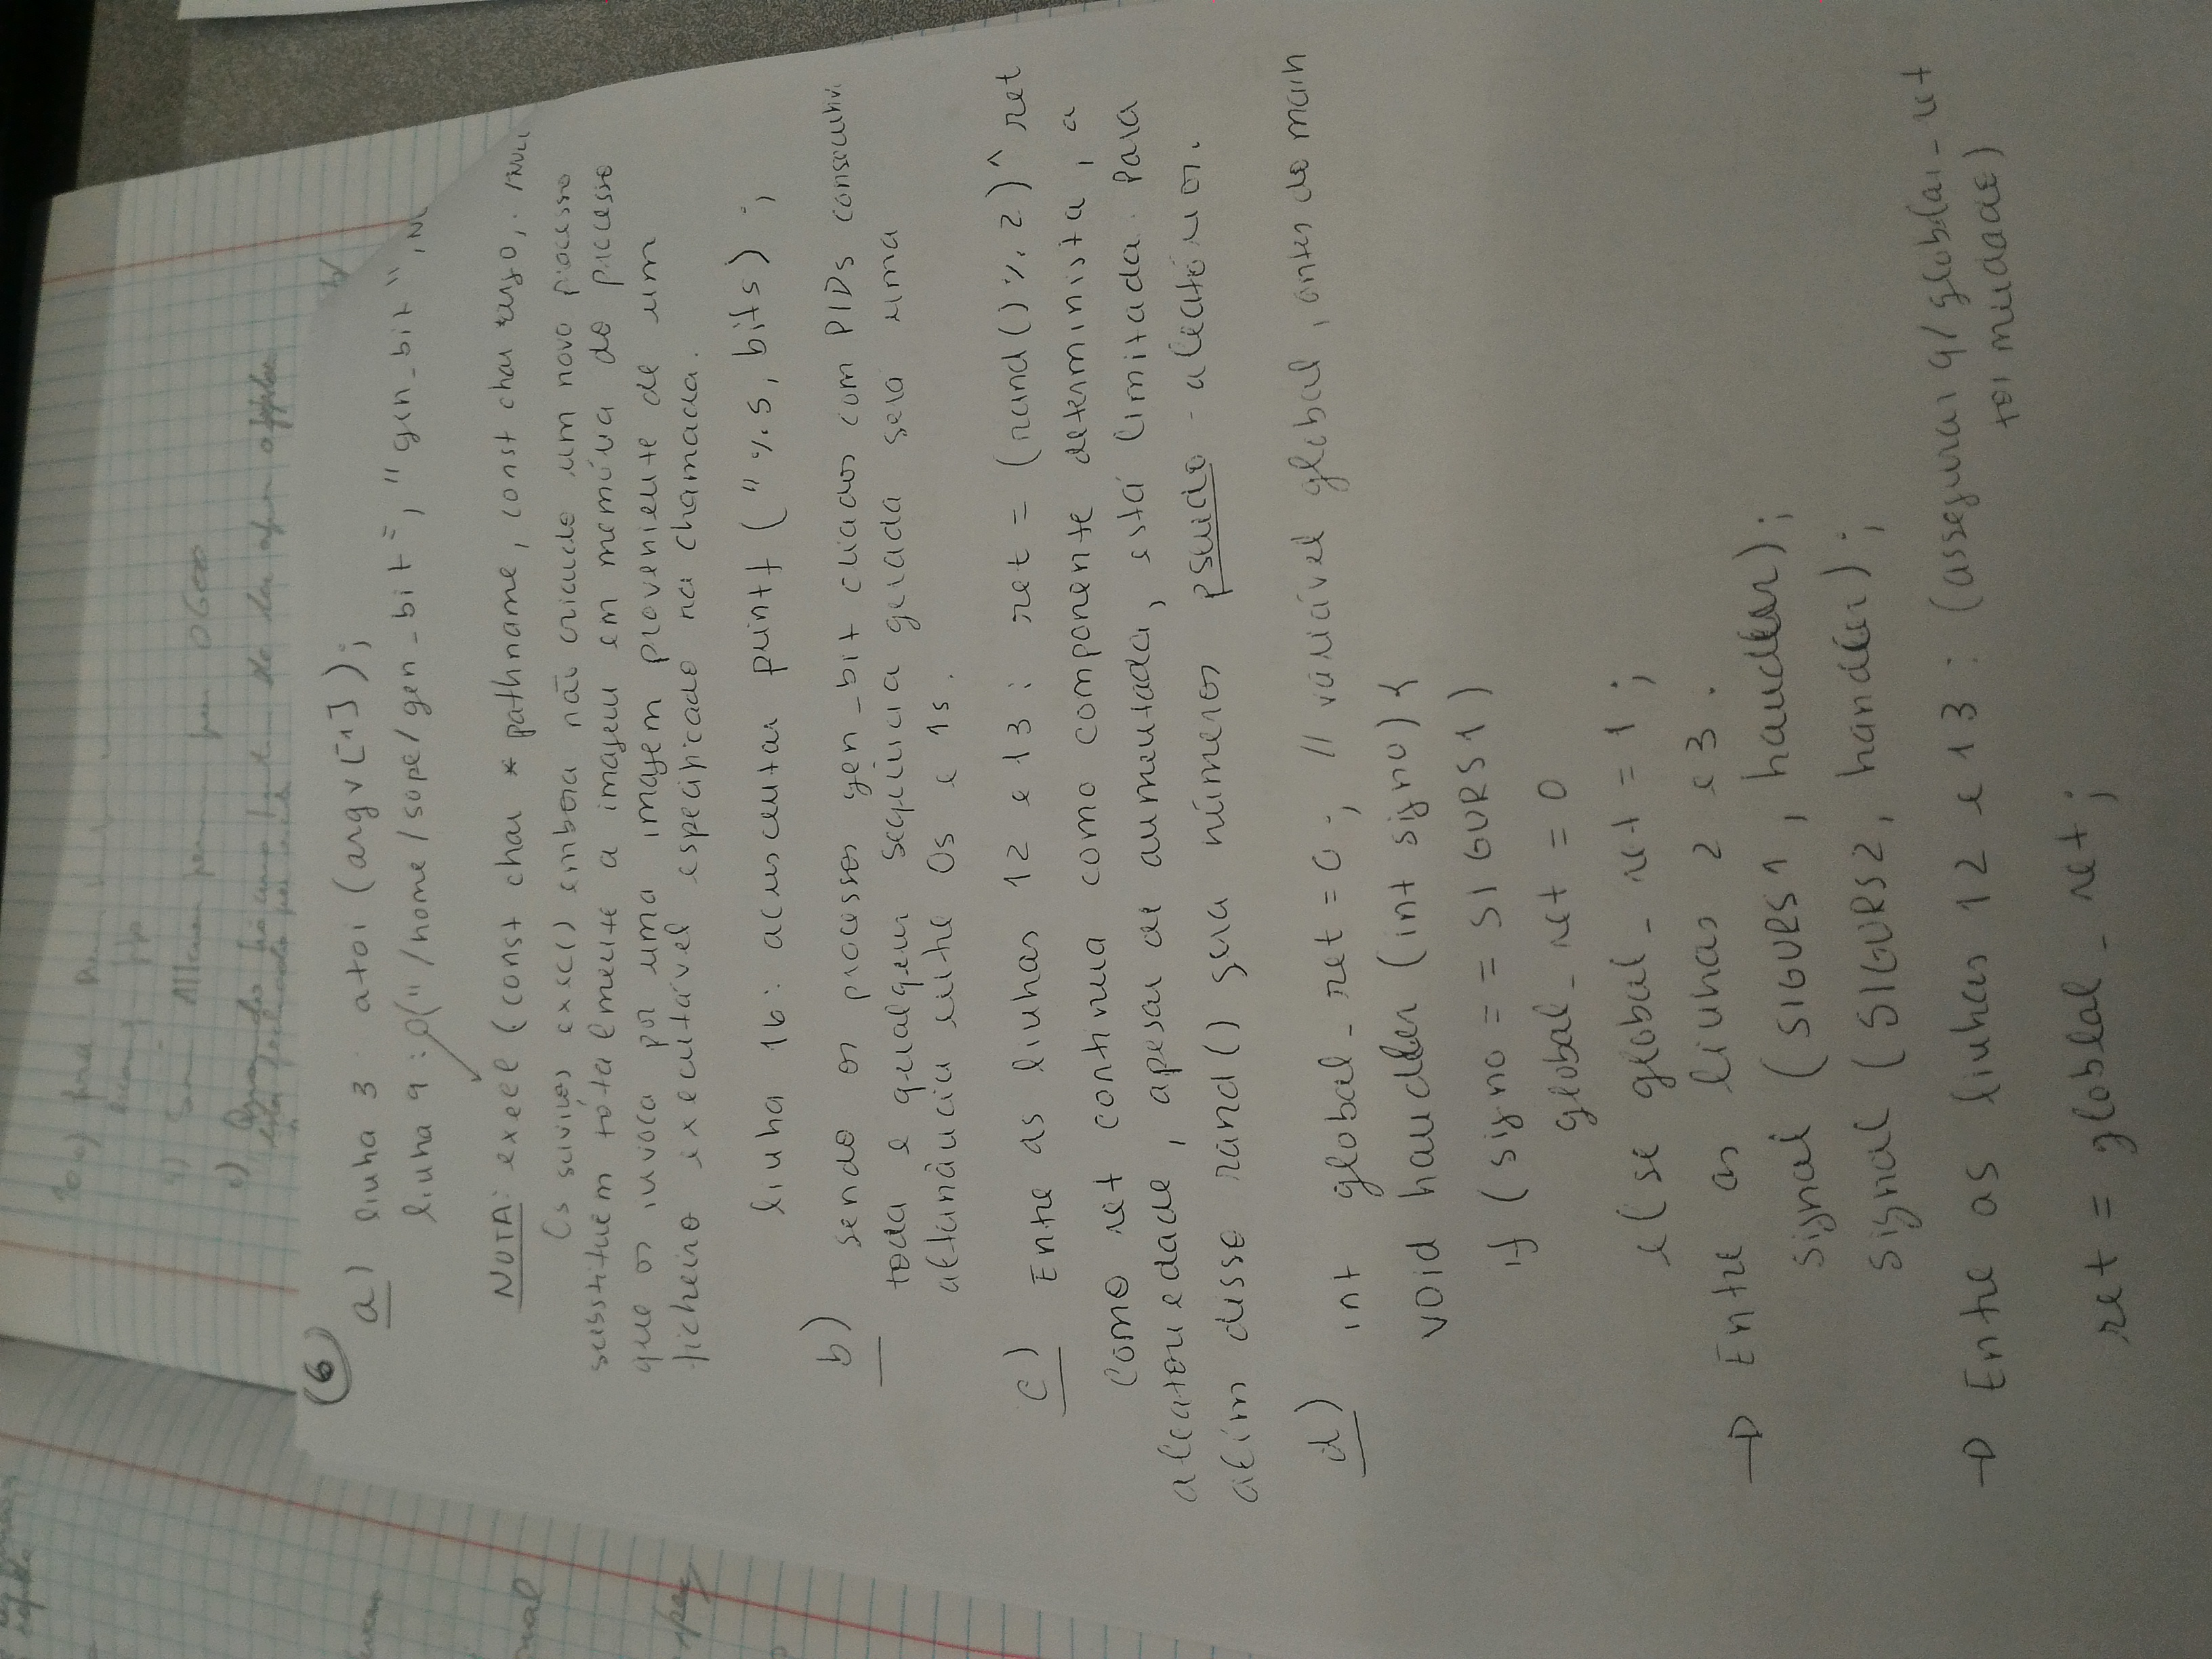 rápido
10 a)
b) Sim
0600
c) Quando
6
a) linha 3 atoi (argv[1]);
linha 9 : ("/home/sope/gen_bit", "gen_bit", N
NOTA: execl (const char * pathname, const char *arg0, . /NULL
Os serviços exec() embora não criando um novo processo
substituem totalmente a imagem em memória do processo
que os invoca por uma imagem proveniente de um
ficheiro executável especificado na chamada.
linha 16: acrescentar printf ("%s, bits) ;
b) sendo os processos gen_bit criados com PIDs consecutiv
toda e qualquer sequência gerada será uma
alternância entre 0s e 1s.
c) Entre as linhas 12 e 13 : ret = (rand()%2)^ ret
Como ret continua como componente determinista, a
aleatoriedade, apesar de aumentada, está limitada. Para
além disso rand() gera números pseudo-aleatórios.
d) int global_ret = 0 ; // variável global, antes do main
void handler (int signo) {
if (signo == SIGURS1)
global_ret = 0
else global_ret = 1 ;
→ Entre as linhas 2 e 3 :
signal (SIGURS1, handler);
signal (SIGURS2, handler);
→ Entre as linhas 12 e 13 : (assegurar q/ globlal_ret
foi mudado)
ret = globlal_ret ;